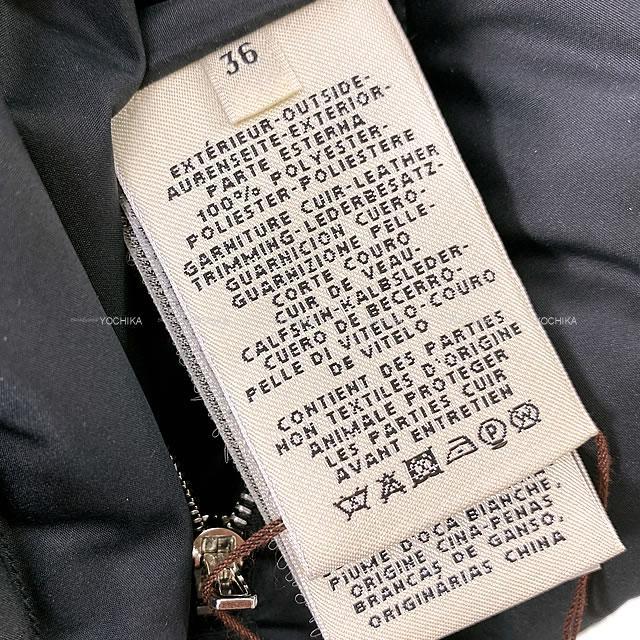 36
EXTÉRIEUR-OUTSIDE-
AURENSEITE-EXTERIOR-
PARTE ESTERNA
100% POLYESTER-
POLIESTER-POLIESTERE
GARNITURE CUIR-LEATHER
TRIMMING-LEDERBESATZ-
GUARNICION CUERO-
GUARNIZIONE PELLE-
CORTE COURO
CUIR DE VEAU-
CALFSKIN-KALBSLEDER-
CUERO DE BECERRO-
PELLE DI VITELLO-COURO
DE VITELO
CONTIENT DES PARTIES
NON TEXTILES D'ORIGINE
ANIMALE PROTEGER
LES PARTIES CUIR
AVANT ENTRETIEN
P W
PIUME D'OCA BIANCHE,
ORIGINE CINA-PENAS
BRANCAS DE GANSO,
ORIGINÁRIAS CHINA
YOCHIKA
YOCHIKA